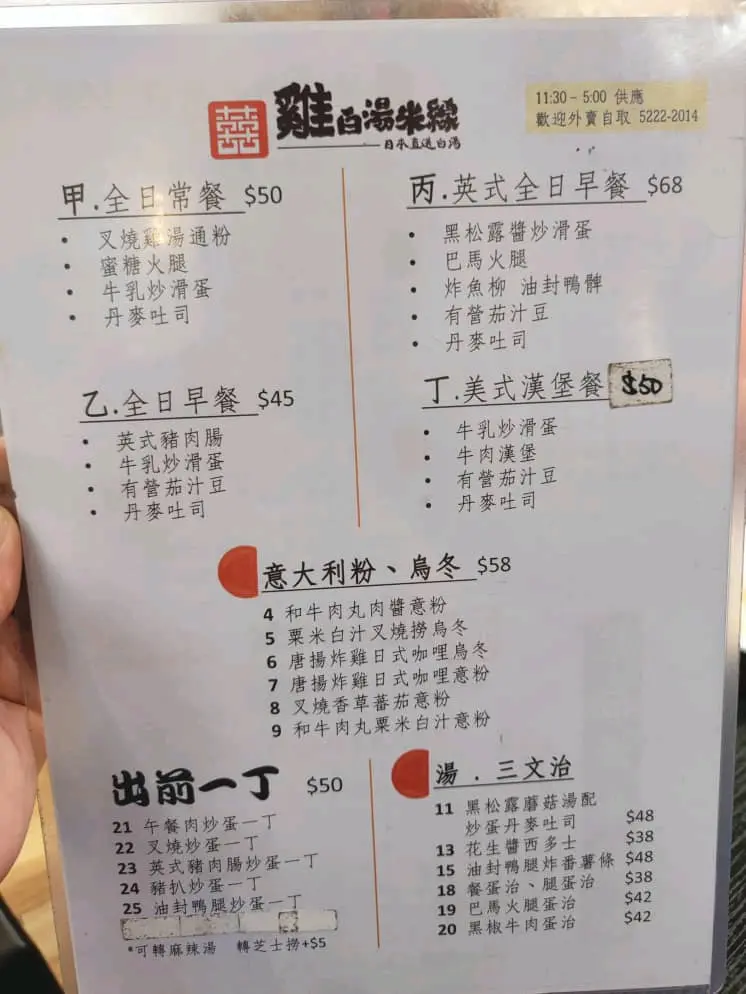 囍
雞白湯米線
日本直送白湯
11:30 - 5:00 供應
歡迎外賣自取 5222-2014
甲.全日常餐 $50
• 叉燒雞湯通粉
• 蜜糖火腿
• 牛乳炒滑蛋
• 丹麥吐司
乙.全日早餐 $45
• 英式豬肉腸
• 牛乳炒滑蛋
• 有營茄汁豆
• 丹麥吐司
丙.英式全日早餐 $68
• 黑松露醬炒滑蛋
• 巴馬火腿
• 炸魚柳 油封鴨髀
• 有營茄汁豆
• 丹麥吐司
丁.美式漢堡餐 $50
• 牛乳炒滑蛋
• 牛肉漢堡
• 有營茄汁豆
• 丹麥吐司
意大利粉、烏冬 $58
4 和牛肉丸肉醬意粉
5 粟米白汁叉燒撈烏冬
6 唐揚炸雞日式咖哩烏冬
7 唐揚炸雞日式咖哩意粉
8 叉燒香草蕃茄意粉
9 和牛肉丸粟米白汁意粉
出前一丁 $50
21 午餐肉炒蛋一丁
22 叉燒炒蛋一丁
23 英式豬肉腸炒蛋一丁
24 豬扒炒蛋一丁
25 油封鴨腿炒蛋一丁
*可轉麻辣湯 轉芝士撈+$5
湯．三文治
11 黑松露蘑菇湯配
炒蛋丹麥吐司 $48
13 花生醬西多士 $38
15 油封鴨腿炸番薯條 $48
18 餐蛋治、腿蛋治 $38
19 巴馬火腿蛋治 $42
20 黑椒牛肉蛋治 $42